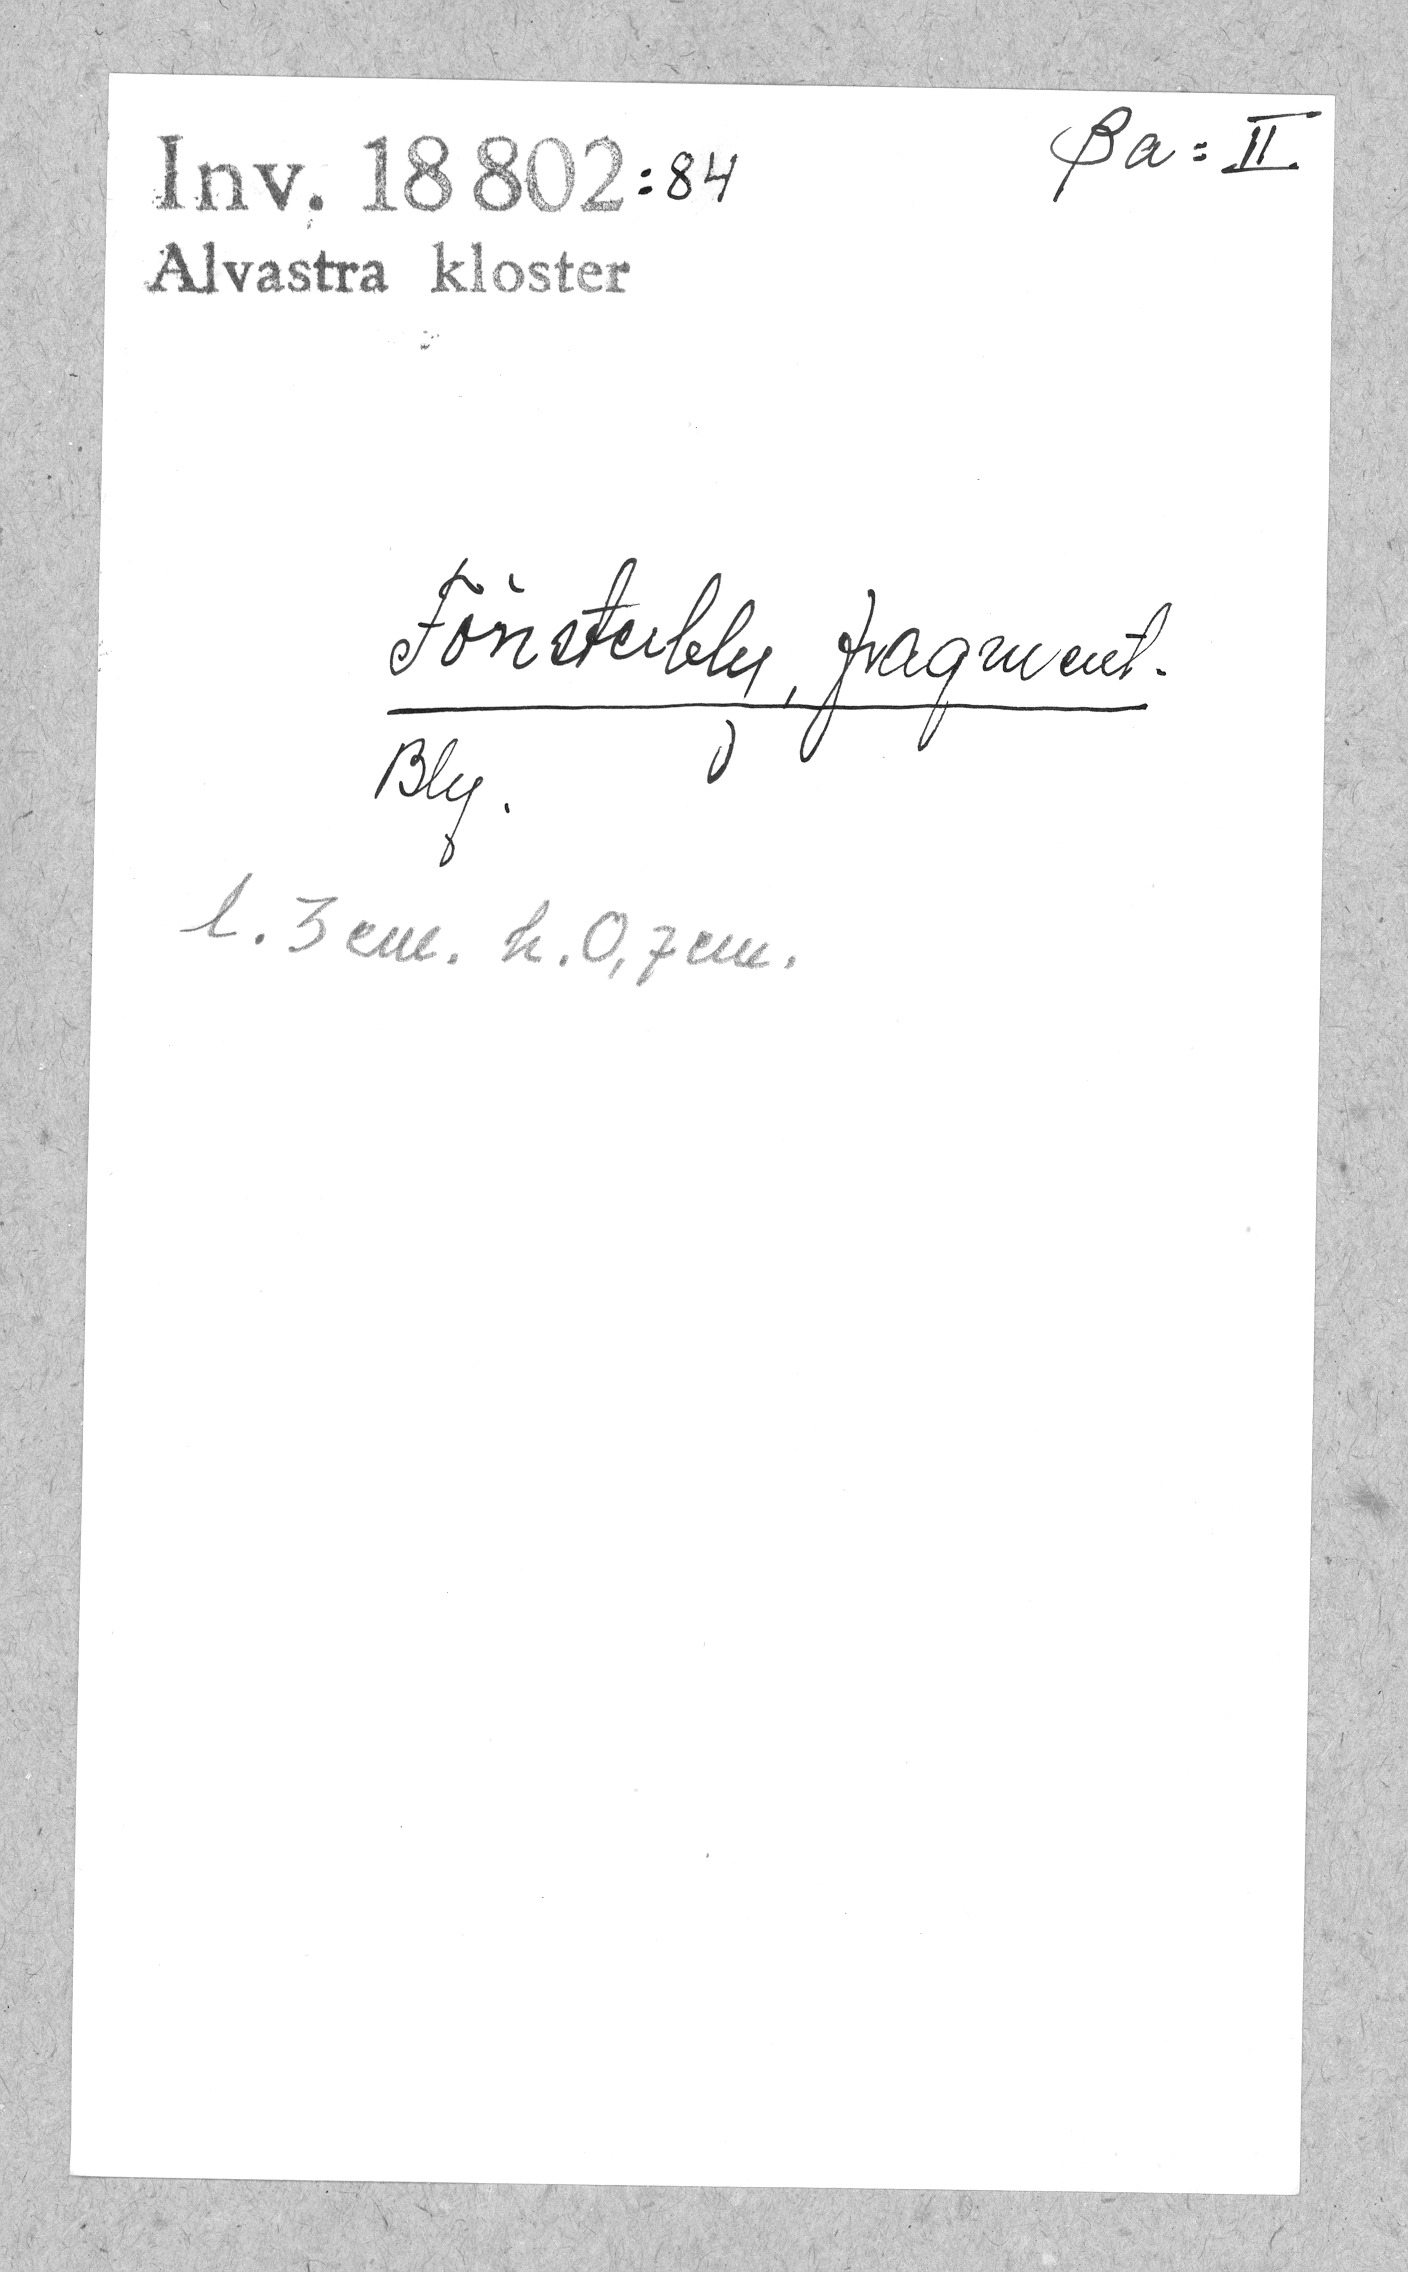 Inv. 18 802:84
βa = II
Alvastra kloster
Fönsterbly, fragment.
Bly.
l. 3 cm. h. 0,7 cm.